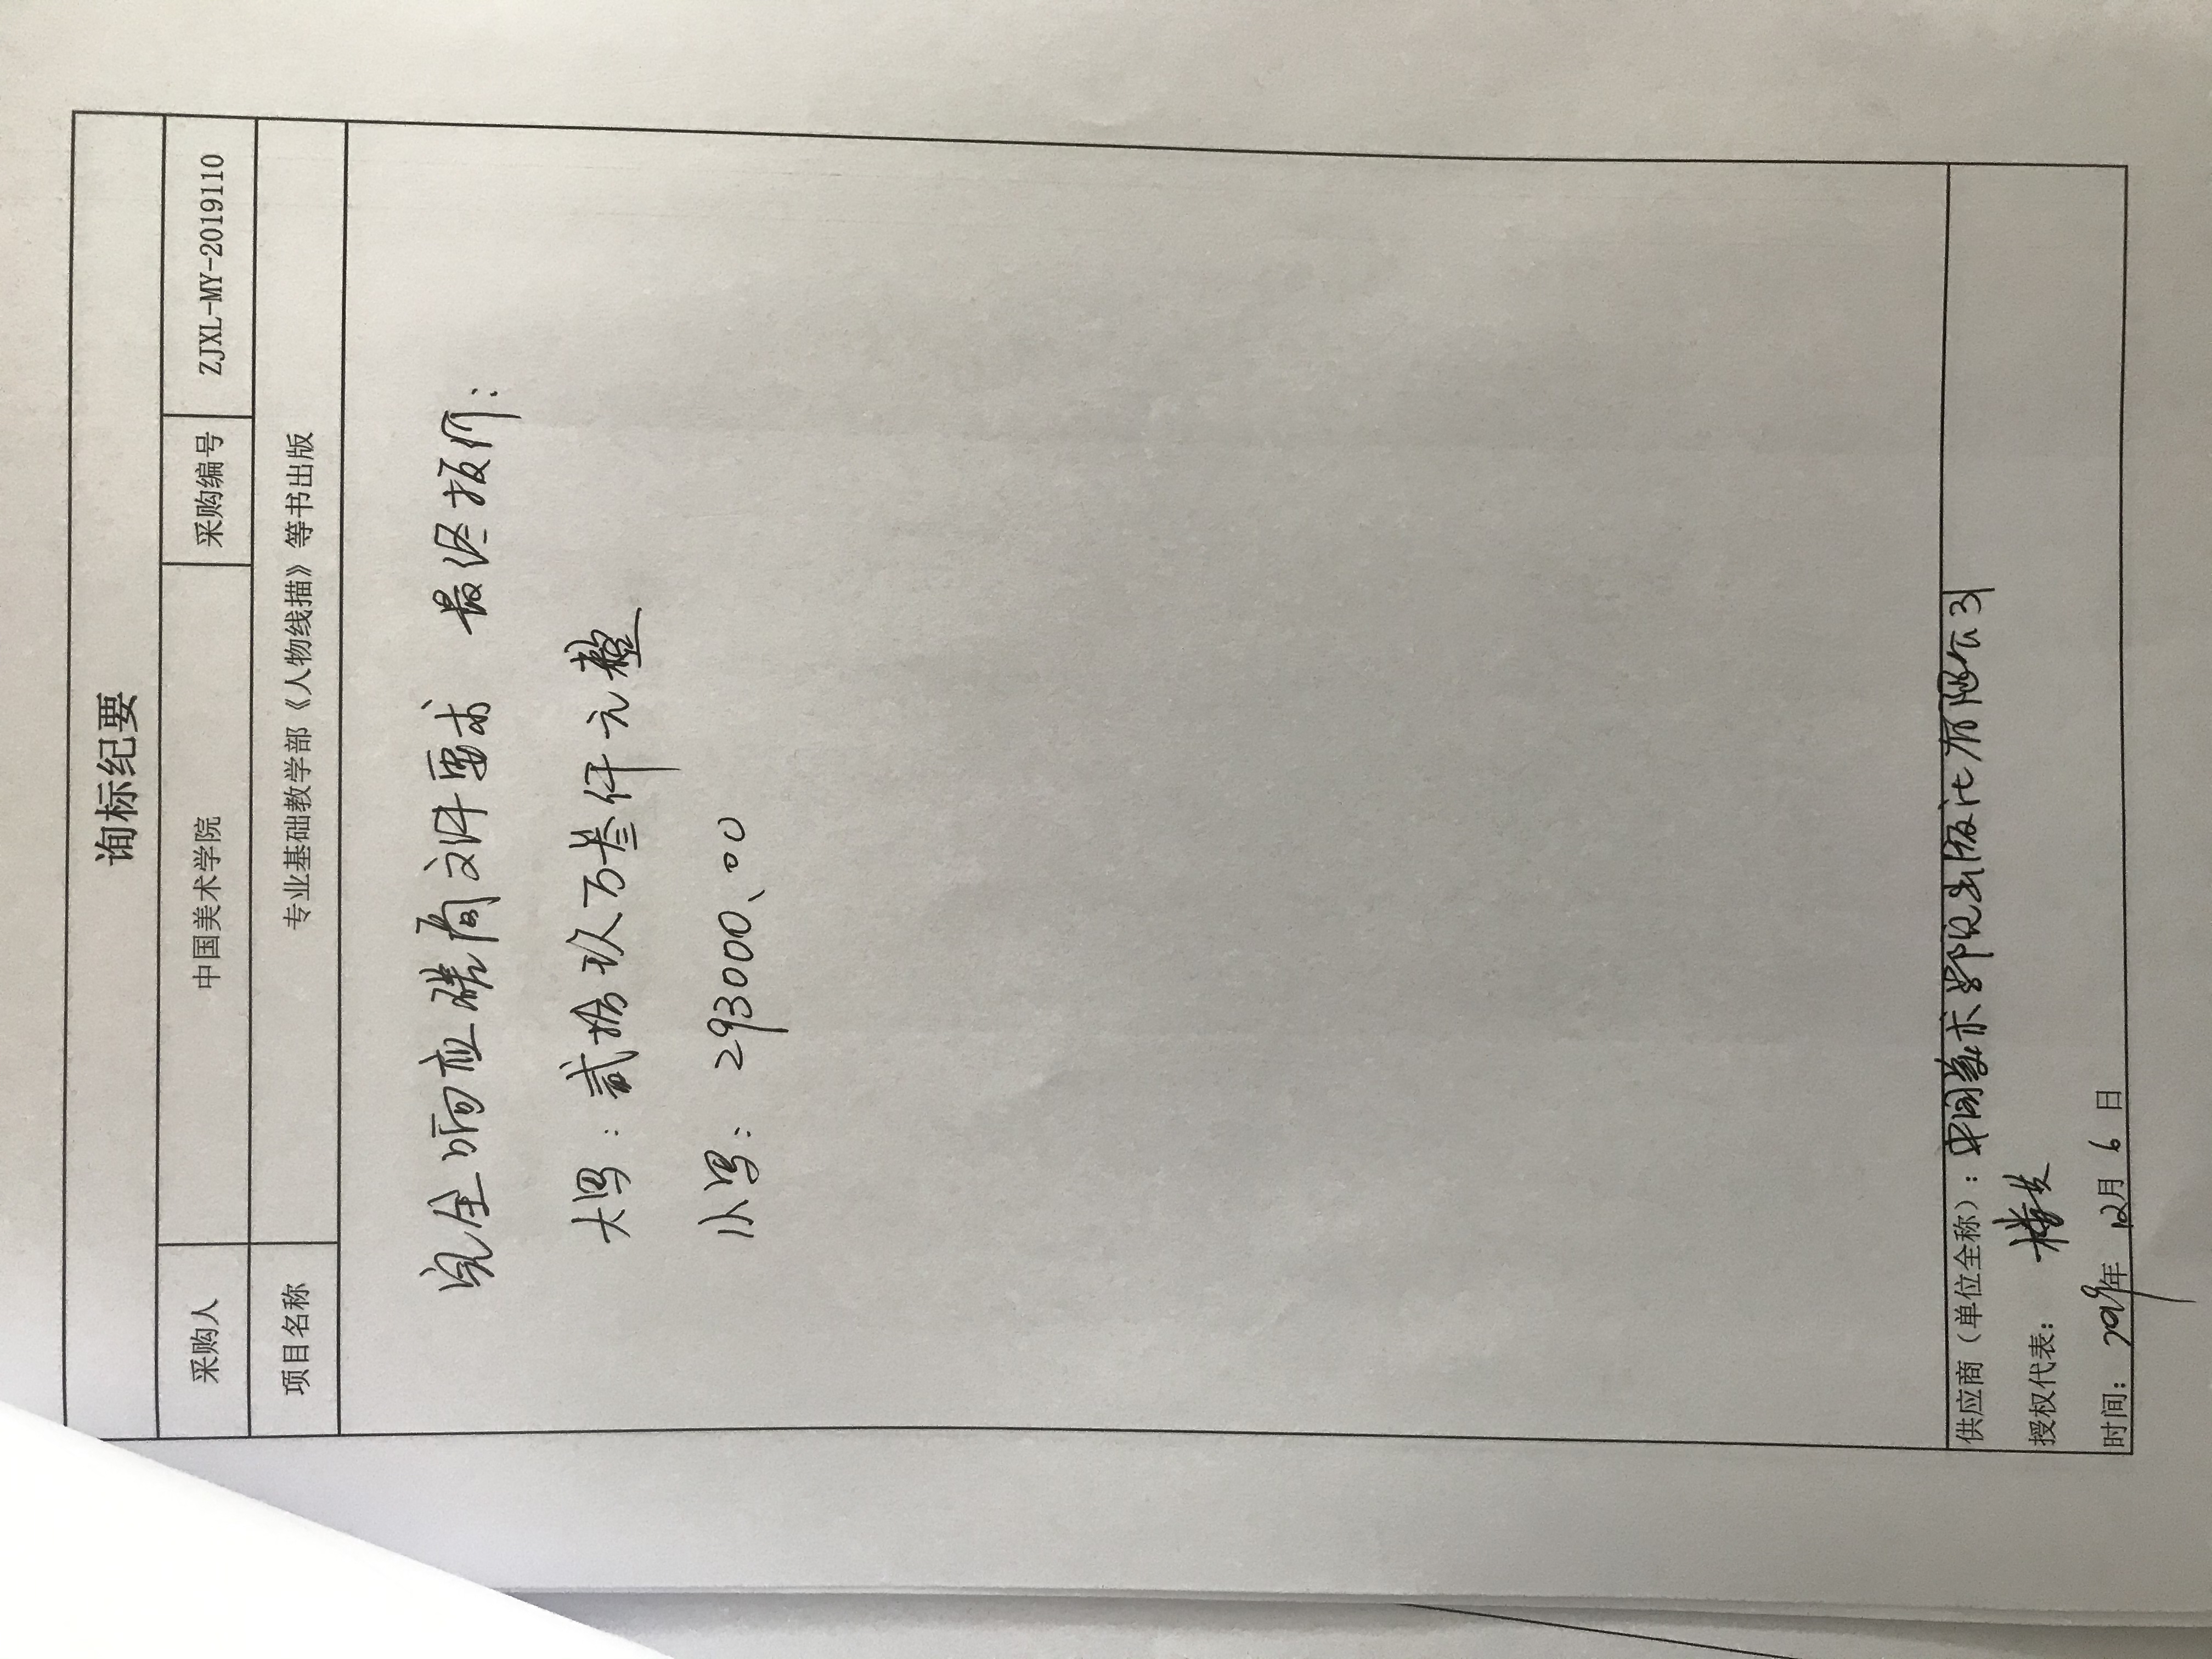 询标纪要
采购人 中国美术学院 采购编号 ZJXL-MY-2019110
项目名称 专业基础教学部《人物线描》等书出版
完全响应磋商文件要求 最终报价:
大写:贰拾玖万叁仟元整
小写:293000.00
供应商(单位全称):中国美术学院出版社有限公司
授权代表:
时间:2019年12月6日